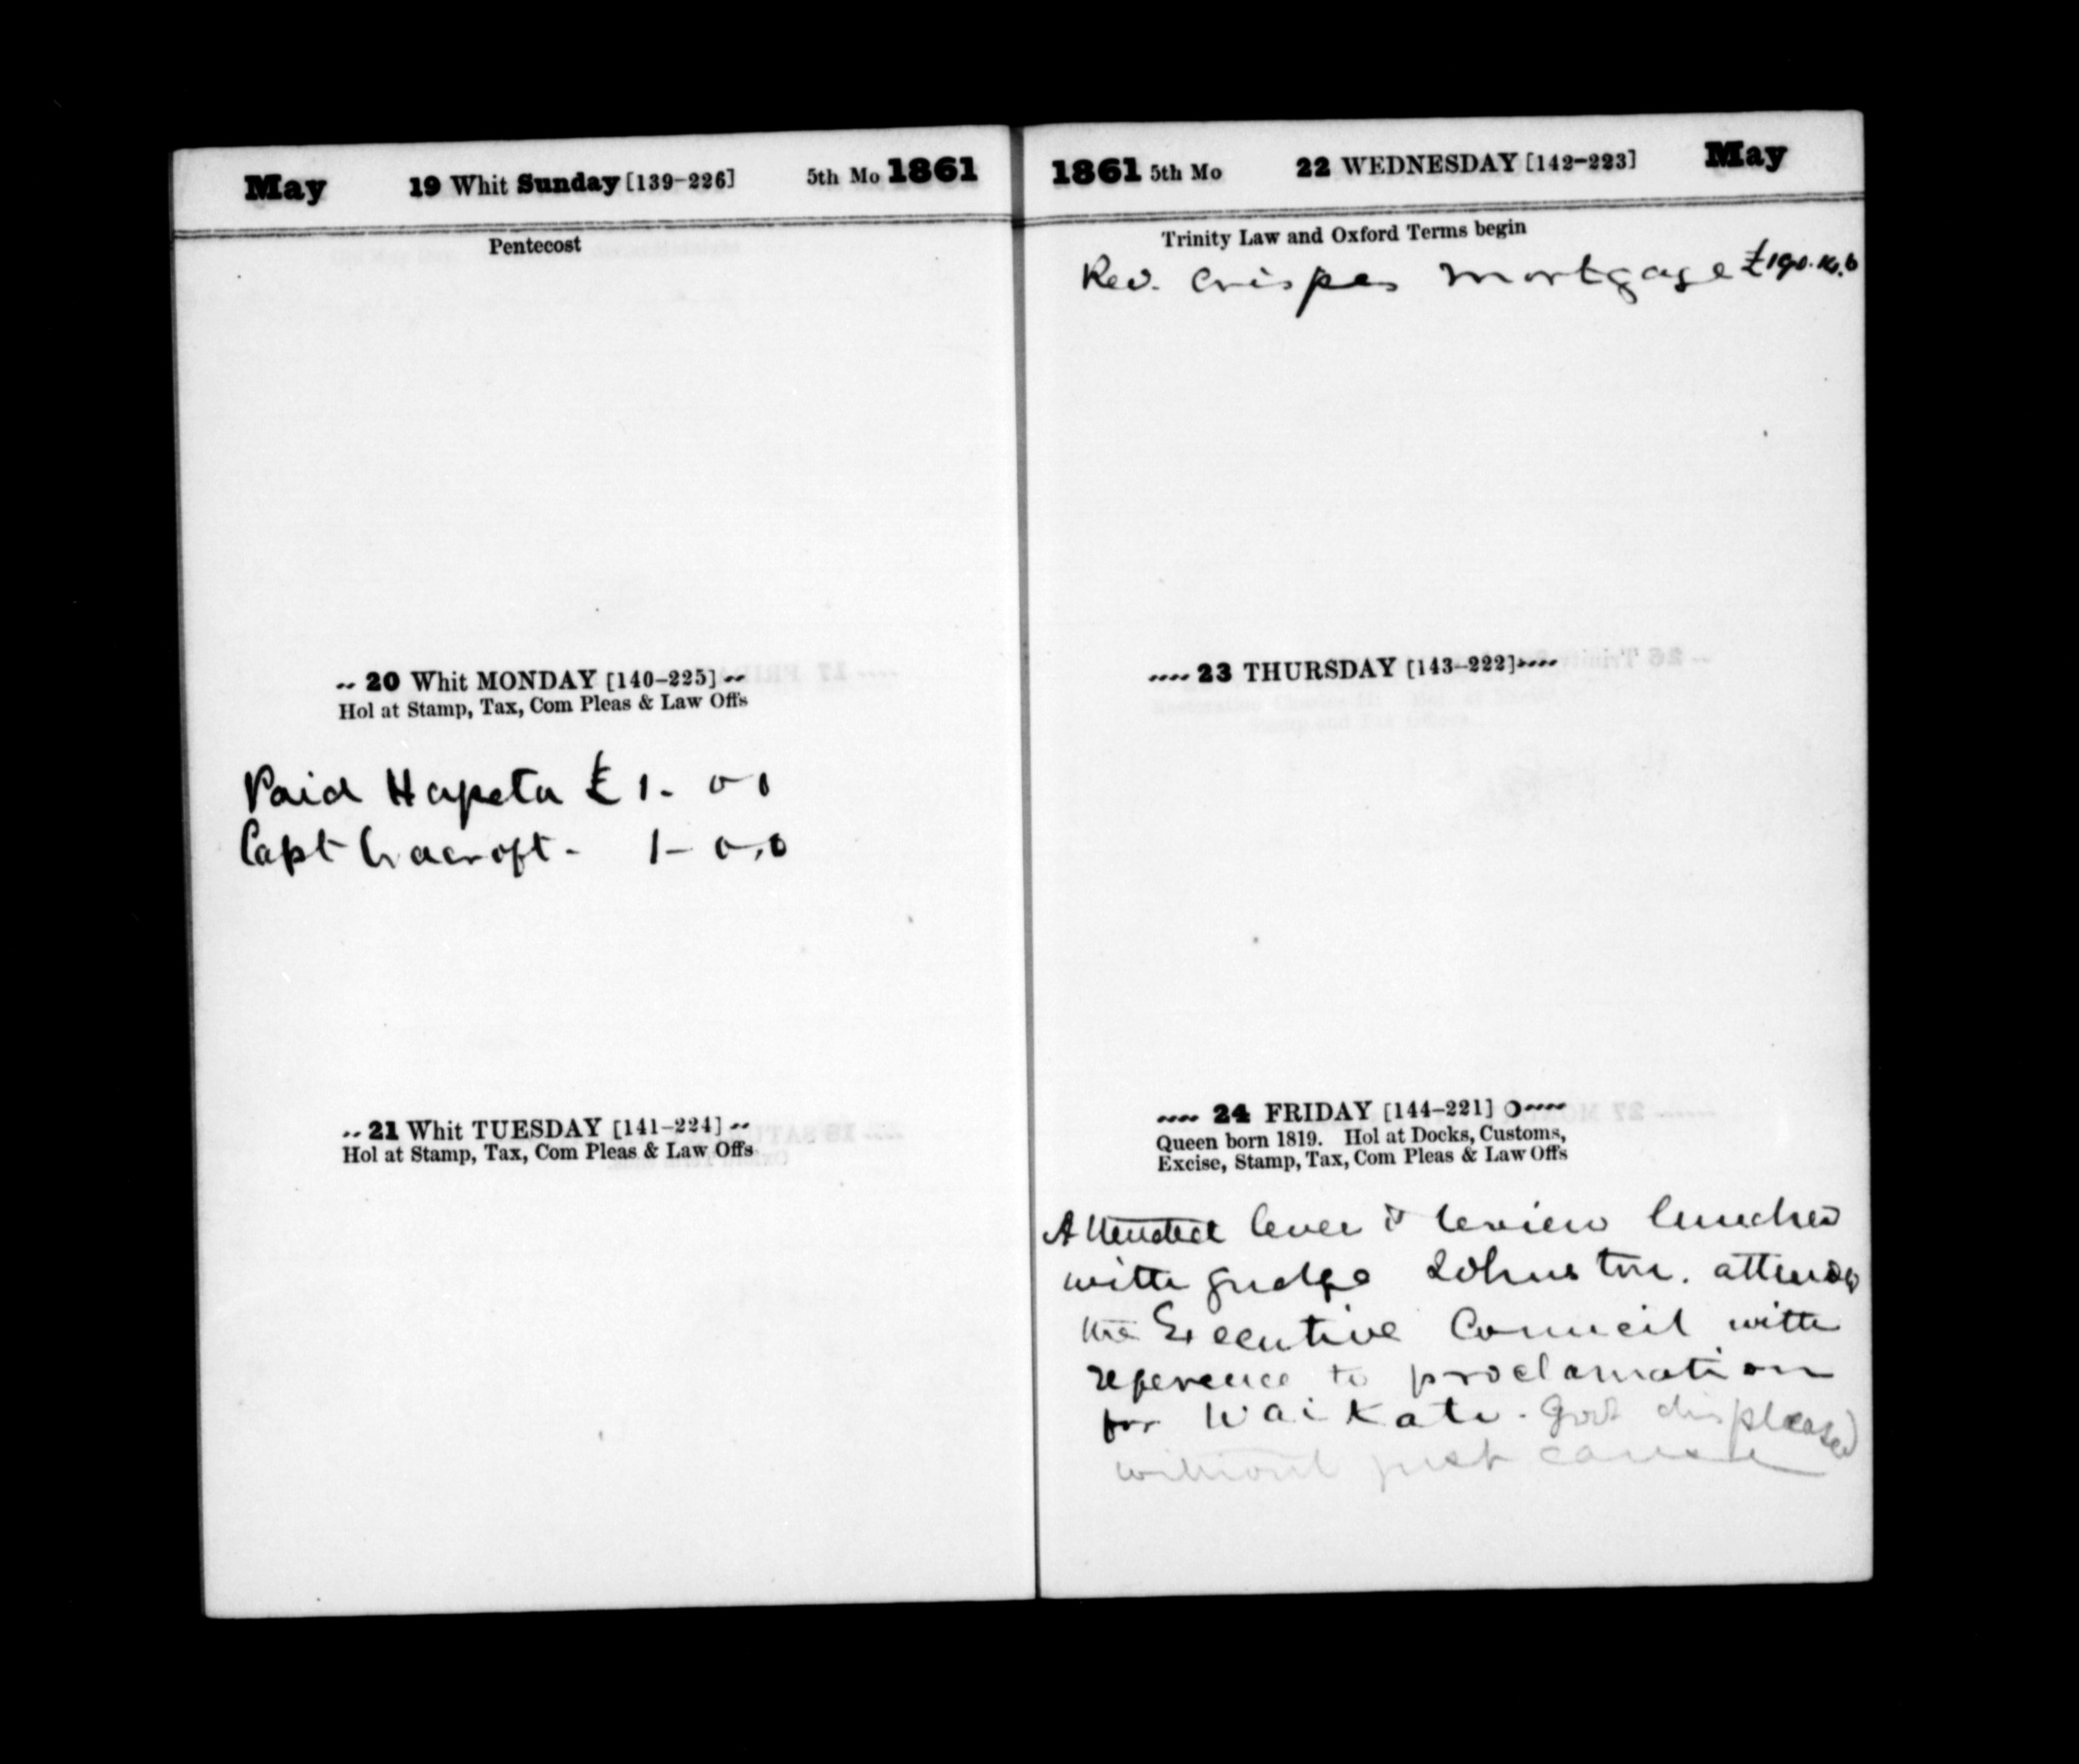 May 19 Whit Sunday [139-226] 5th Mo 1861
Pentecost
-- 20 Whit MONDAY [140-225] --
Hol at Stamp, Tax, Com Pleas & Law Offs
Paid Hapeta £1-0-0
Capt Cracroft - 1-0-0
-- 21 Whit TUESDAY [141-224] --
Hol at Stamp, Tax, Com Pleas & Law Offs
1861 5th Mo 22 WEDNESDAY [142-223] May
Trinity Law and Oxford Terms begin
Red. Crispes mortgage
---- 23 THURSDAY [143-222] ----
---- 24 FRIDAY [144-221] ----
Queen born 1819. Hol at Docks, Customs,
Excise, Stamp, Tax, Com Pleas & Law Offs
Attended levee & review lunched
with Judge Johnston. attended
the Executive Council with
reference to proclamation
for Waikato. Govt displeased
without just cause